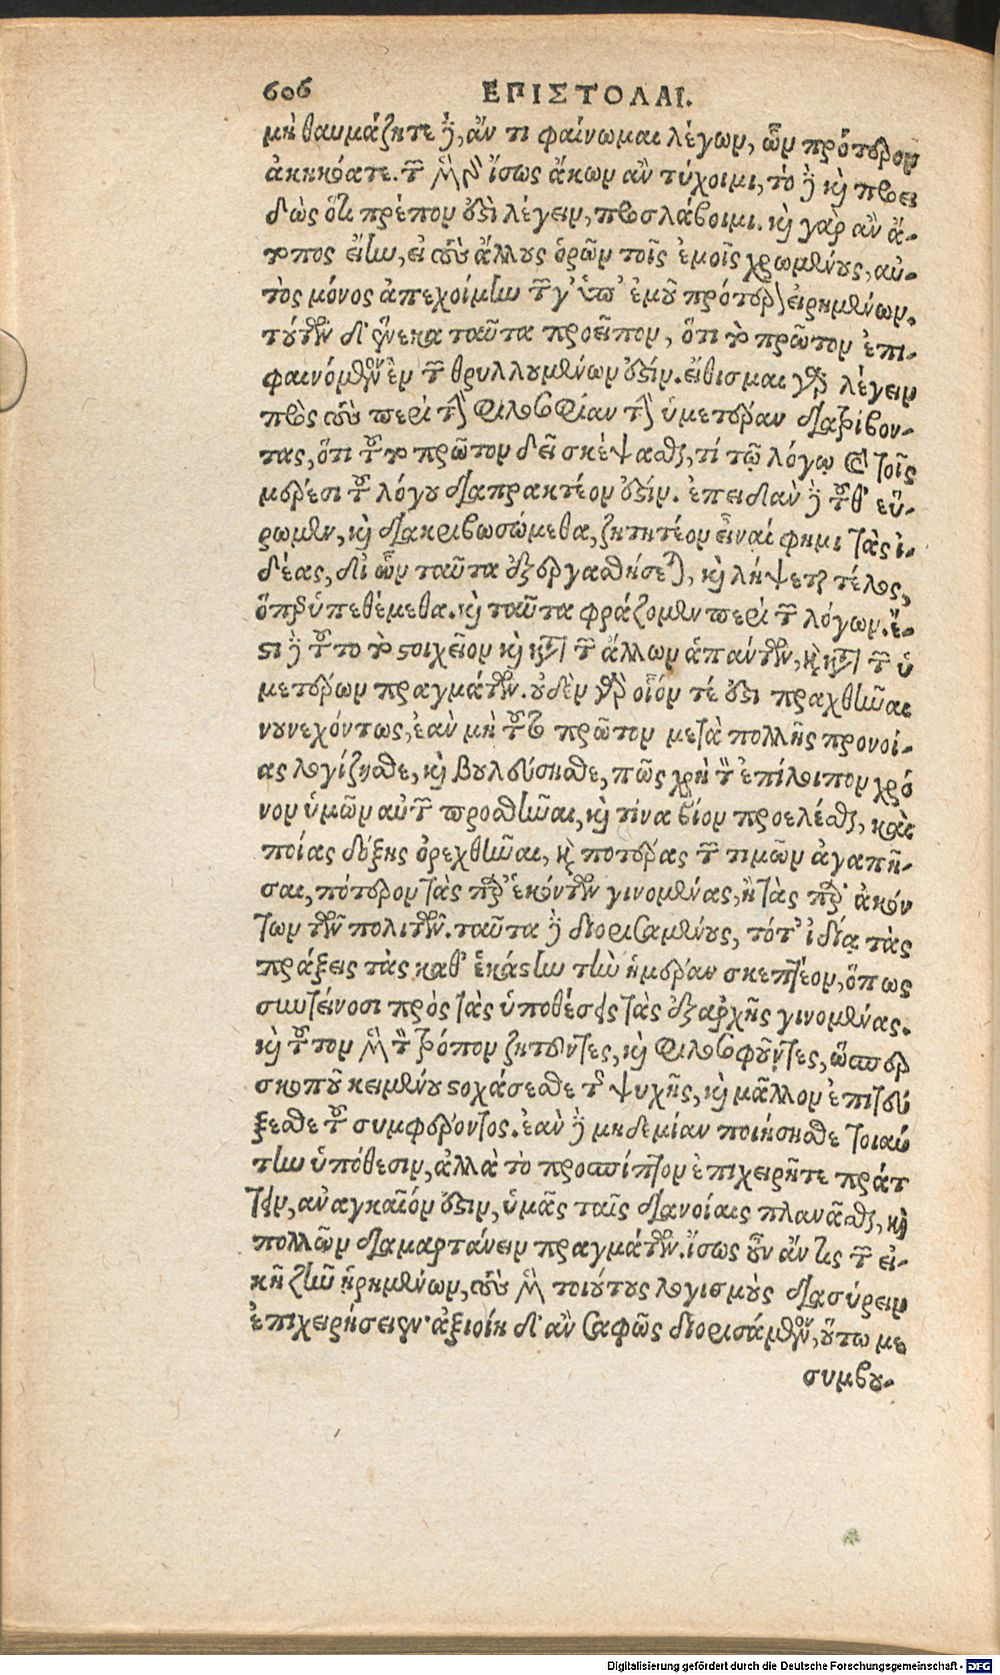 606 ΕΠΙΣΤΟΛΑΙ.
μὴ θαυμάζητε δὲ, ἄν τι φαίνωμαι λέγων, ὧν πρότερον
ἀκηκόατε. τῶν μὲν γὰρ ἴσως ἄκων ἂν τύχοιμι, τὸ δὲ καὶ προει
δὼς ὅτι πρέπον ἐστὶ λέγειν, προσλάβοιμι. καὶ γὰρ ἂν ἄ-
τοπος εἴην, εἰ τοὺς ἄλλους ὁρῶν τοῖς ἐμοῖς χρωμένους, αὐ-
τὸς μόνος ἀπεχοίμην τῶν γ' ὑπ' ἐμοῦ πρότερον εἰρημένων.
τούτων δ' ἕνεκα ταῦτα προεῖπον, ὅτι τὸ πρῶτον ἐπι-
φαινόμενον ἓν τῶν θρυλλουμένων ἐστίν. εἴθισμαι γὰρ λέγειν
πρὸς τοὺς περὶ τὴν φιλοσοφίαν τὴν ὑμετέραν διατρίβον-
τας, ὅτι τοῦτο πρῶτον δεῖ σκέψασθαι, τί τῷ λόγῳ καὶ τοῖς
μέρεσι τοῦ λόγου διαπρακτέον ἐστίν. ἐπειδὰν δὲ τοῦθ' εὕ-
ρωμεν, καὶ διακριβωσώμεθα, ζητητέον εἶναί φημι τὰς ἰ-
δέας, δι' ὧν ταῦτα ἐξεργασθήσεται, καὶ λήψεται τέλος,
ὅπερ ὑπεθέμεθα. καὶ ταῦτα φράζομεν περὶ τῶν λόγων. ἔ-
στι δὲ τοῦτο τὸ στοιχεῖον καὶ κατὰ τῶν ἄλλων ἁπάντων, καὶ κατὰ τῶν ὑ
μετέρων πραγμάτων. οὐδὲν γὰρ οἷόν τέ ἐστι πραχθῆναι
νουνεχόντως, ἐὰν μὴ τοῦτο πρῶτον μετὰ πολλῆς προνοί-
ας λογίζησθε, καὶ βουλεύσησθε, πῶς χρὴ τὸν ἐπίλοιπον χρό
νον ὑμῶν αὐτῶν προσθῆναι, καὶ τίνα βίον προελέσθαι, καὶ
ποίας δόξης ὀρεχθῆναι, καὶ ποτέρας τῶν τιμῶν ἀγαπῆ-
σαι, πότερον τὰς παρ' ἑκόντων γινομένας, ἢ τὰς παρ' ἀκόν
των τῶν πολιτῶν. ταῦτα δὲ διορισαμένους, τότ' ἰδίᾳ τὰς
πράξεις τὰς καθ' ἑκάστην τὴν ἡμέραν σκεπτέον, ὅπως
συντείνωσι πρὸς τὰς ὑποθέσεις τὰς ἐξ ἀρχῆς γινομένας.
καὶ τοῦτον μὲν τὸν τρόπον ζητοῦντες, καὶ φιλοσοφοῦντες, ὥσπερ
σκοποῦ κειμένου στοχάσεσθε τῆς ψυχῆς, καὶ μᾶλλον ἐπιτεύ
ξεσθε τοῦ συμφέροντος. ἐὰν δὲ μηδεμίαν ποιήσησθε τοιαύ
την ὑπόθεσιν, ἀλλὰ τὸ προσπίπτον ἐπιχειρῆτε πράτ
τειν, ἀναγκαῖόν ἐστιν, ὑμᾶς ταῖς διανοίαις πλανᾶσθαι, καὶ
πολλῶν διαμαρτάνειν πραγμάτων. ἴσως οὖν ἄν τις τῶν εἰ-
κῆ ζῆν ᾑρημένων, τοὺς μὲν τοιούτους λογισμοὺς διασύρειν
ἐπιχειρήσειεν· ἀξιοίη δ' ἂν σαφῶς διορισάμενον, οὕτω με
συμβου-
Digitalisierung gefördert durch die Deutsche Forschungsgemeinschaft - DFG